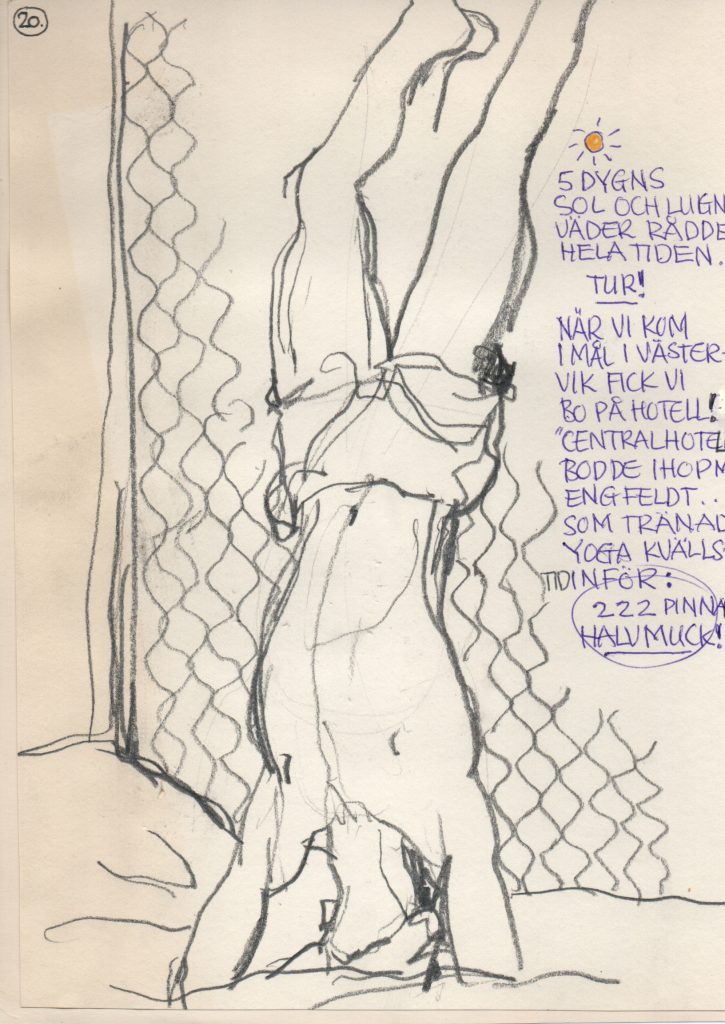 20.
5 DYGNS
SOL OCH LUGN
VÄDER RÅDDE
HELA TIDEN.
TUR!
NÄR VI KOM
I MÅL I VÄSTER-
VIK FICK VI
BO PÅ HOTELL!
"CENTRALHOTEL
BODDE IHOP M
ENGFELDT..
SOM TRÄNAD
YOGA KVÄLLS
TID INFÖR:
222 PINNA
HALVMUCK!